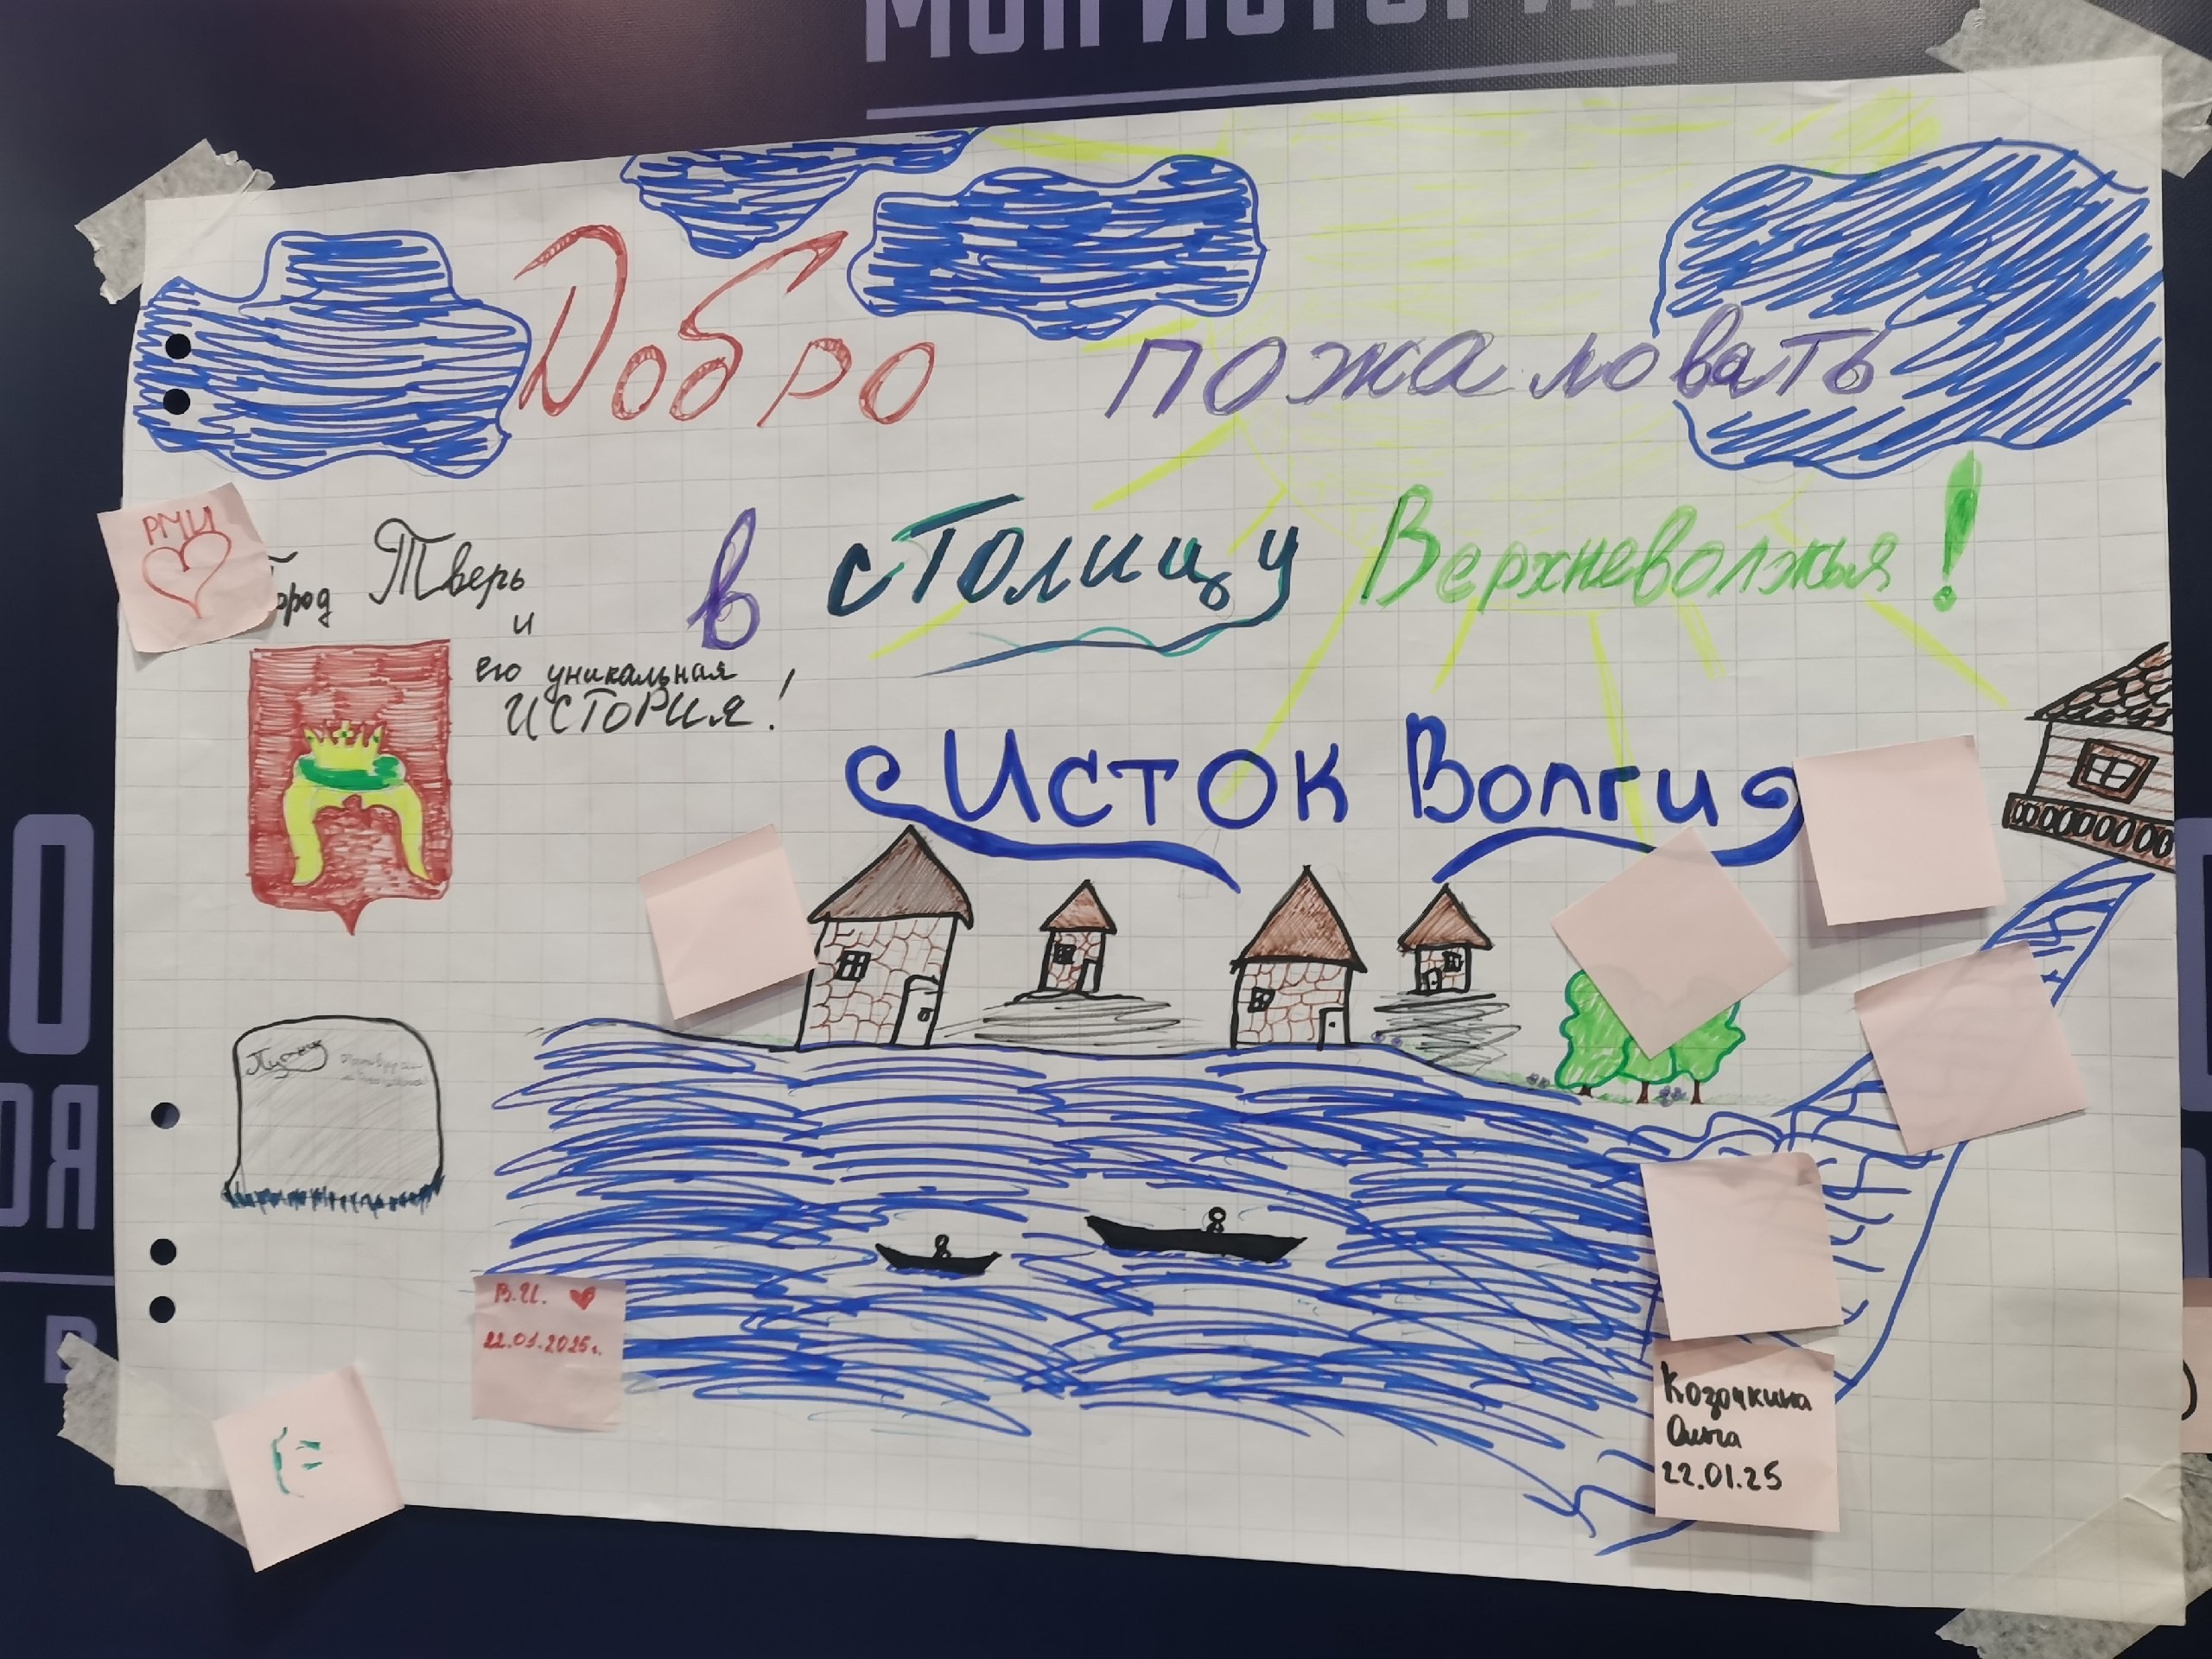 МОЯ ИСТОРИЯ
Добро пожаловать
в столицу Верхневолжья!
РМИ
город Тверь
и
его уникальная
ИСТОРИЯ!
Исток Волги
В.И.
22.01.2025г.
Козочкина
Ольга
22.01.25